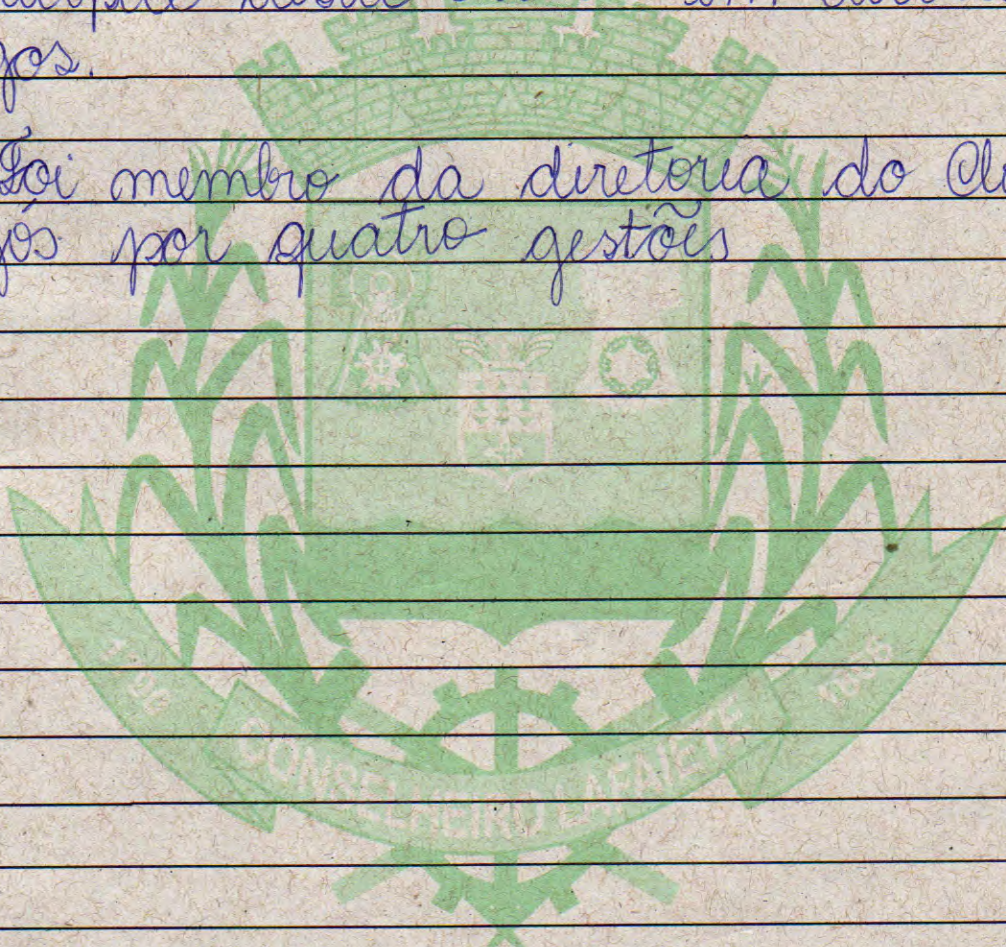 desde
gos.
Foi membro da diretoria do Clu
jós por quatro gestões
CONSELHEIRO LAFAIETE